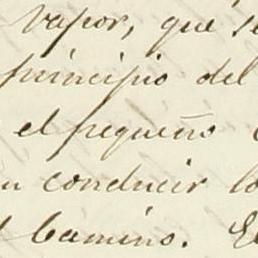 vapor, que se
principio del
el pequeño
n conducir lo
camino. El